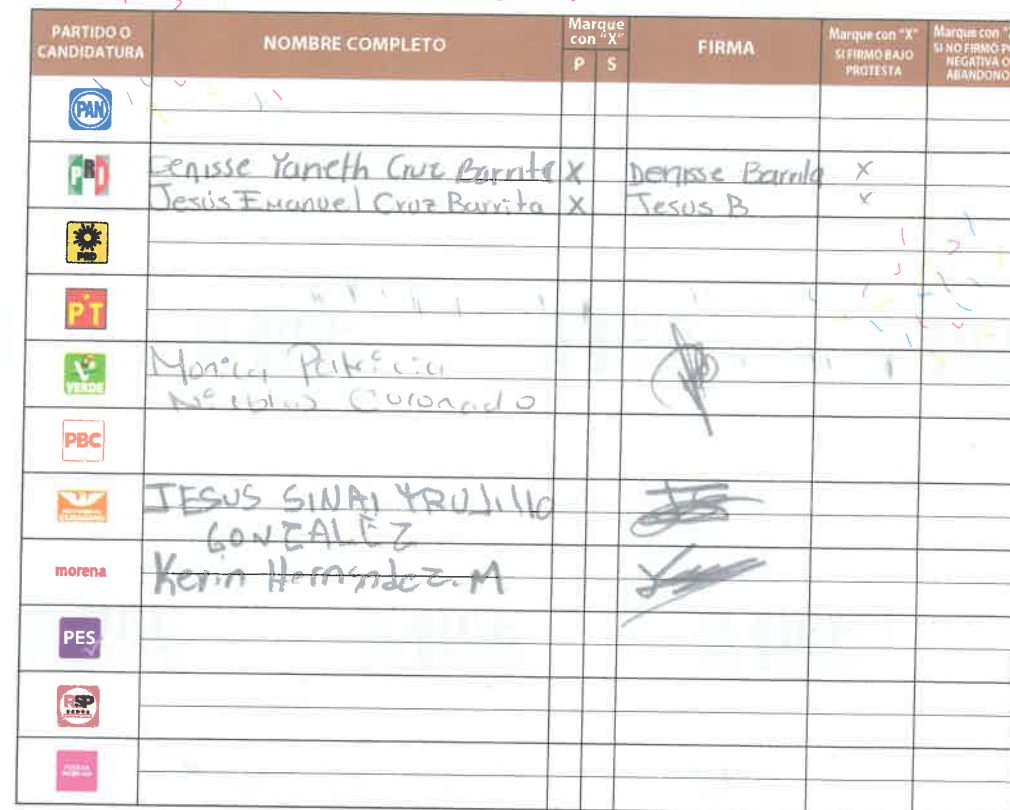 PARTIDO O CANDIDATURA NOMBRE COMPLETO Marque con "X" P S FIRMA Marque con "X" SI FIRMÓ BAJO PROTESTA Marque con "X SI NO FIRMÓ PO NEGATIVA O ABANDONO
PAN
PRI Denisse Yaneth Cruz Barrita X Denisse Barrita X
Jesús Emanuel Cruz Barrita X Jesus B X
PRD
PT
VERDE Monica Patricia
Coronado
PBC
MOVIMIENTO CIUDADANO JESUS SINAI TRUJillO
GONZALEZ
morena Kevin Hernandez. M
PES
RSP